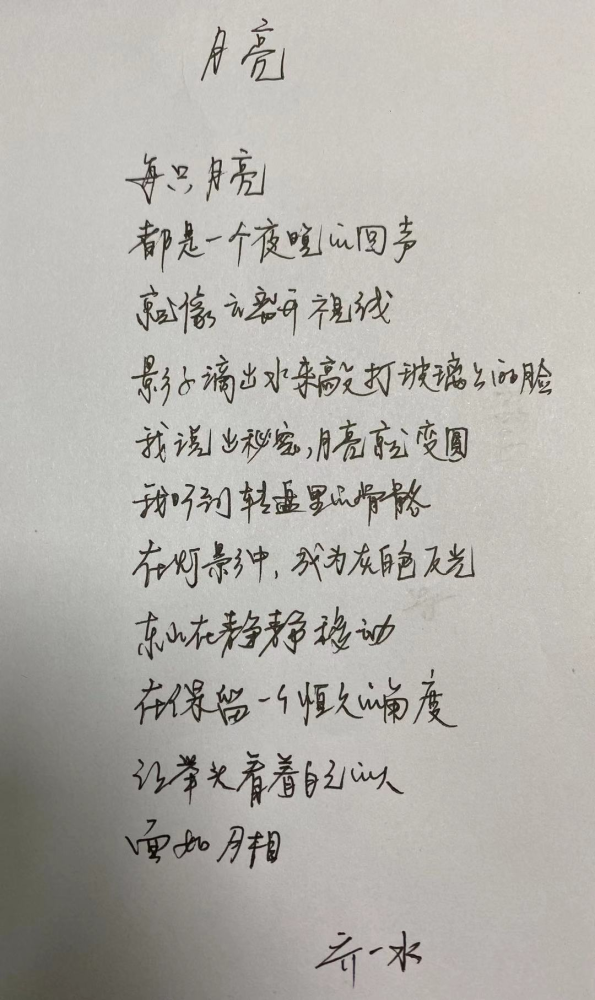 月亮
每只月亮
都是一个夜晚的回声
就像云离开视线
影子滴出水来敲打玻璃上的脸
我说出秘密,月亮就变圆
我听到转盘里的骨骼
在灯影中,成为灰色反光
东山在静静移动
在保留一个恒久的角度
让举头看着自己的人
面如月相
齐一水